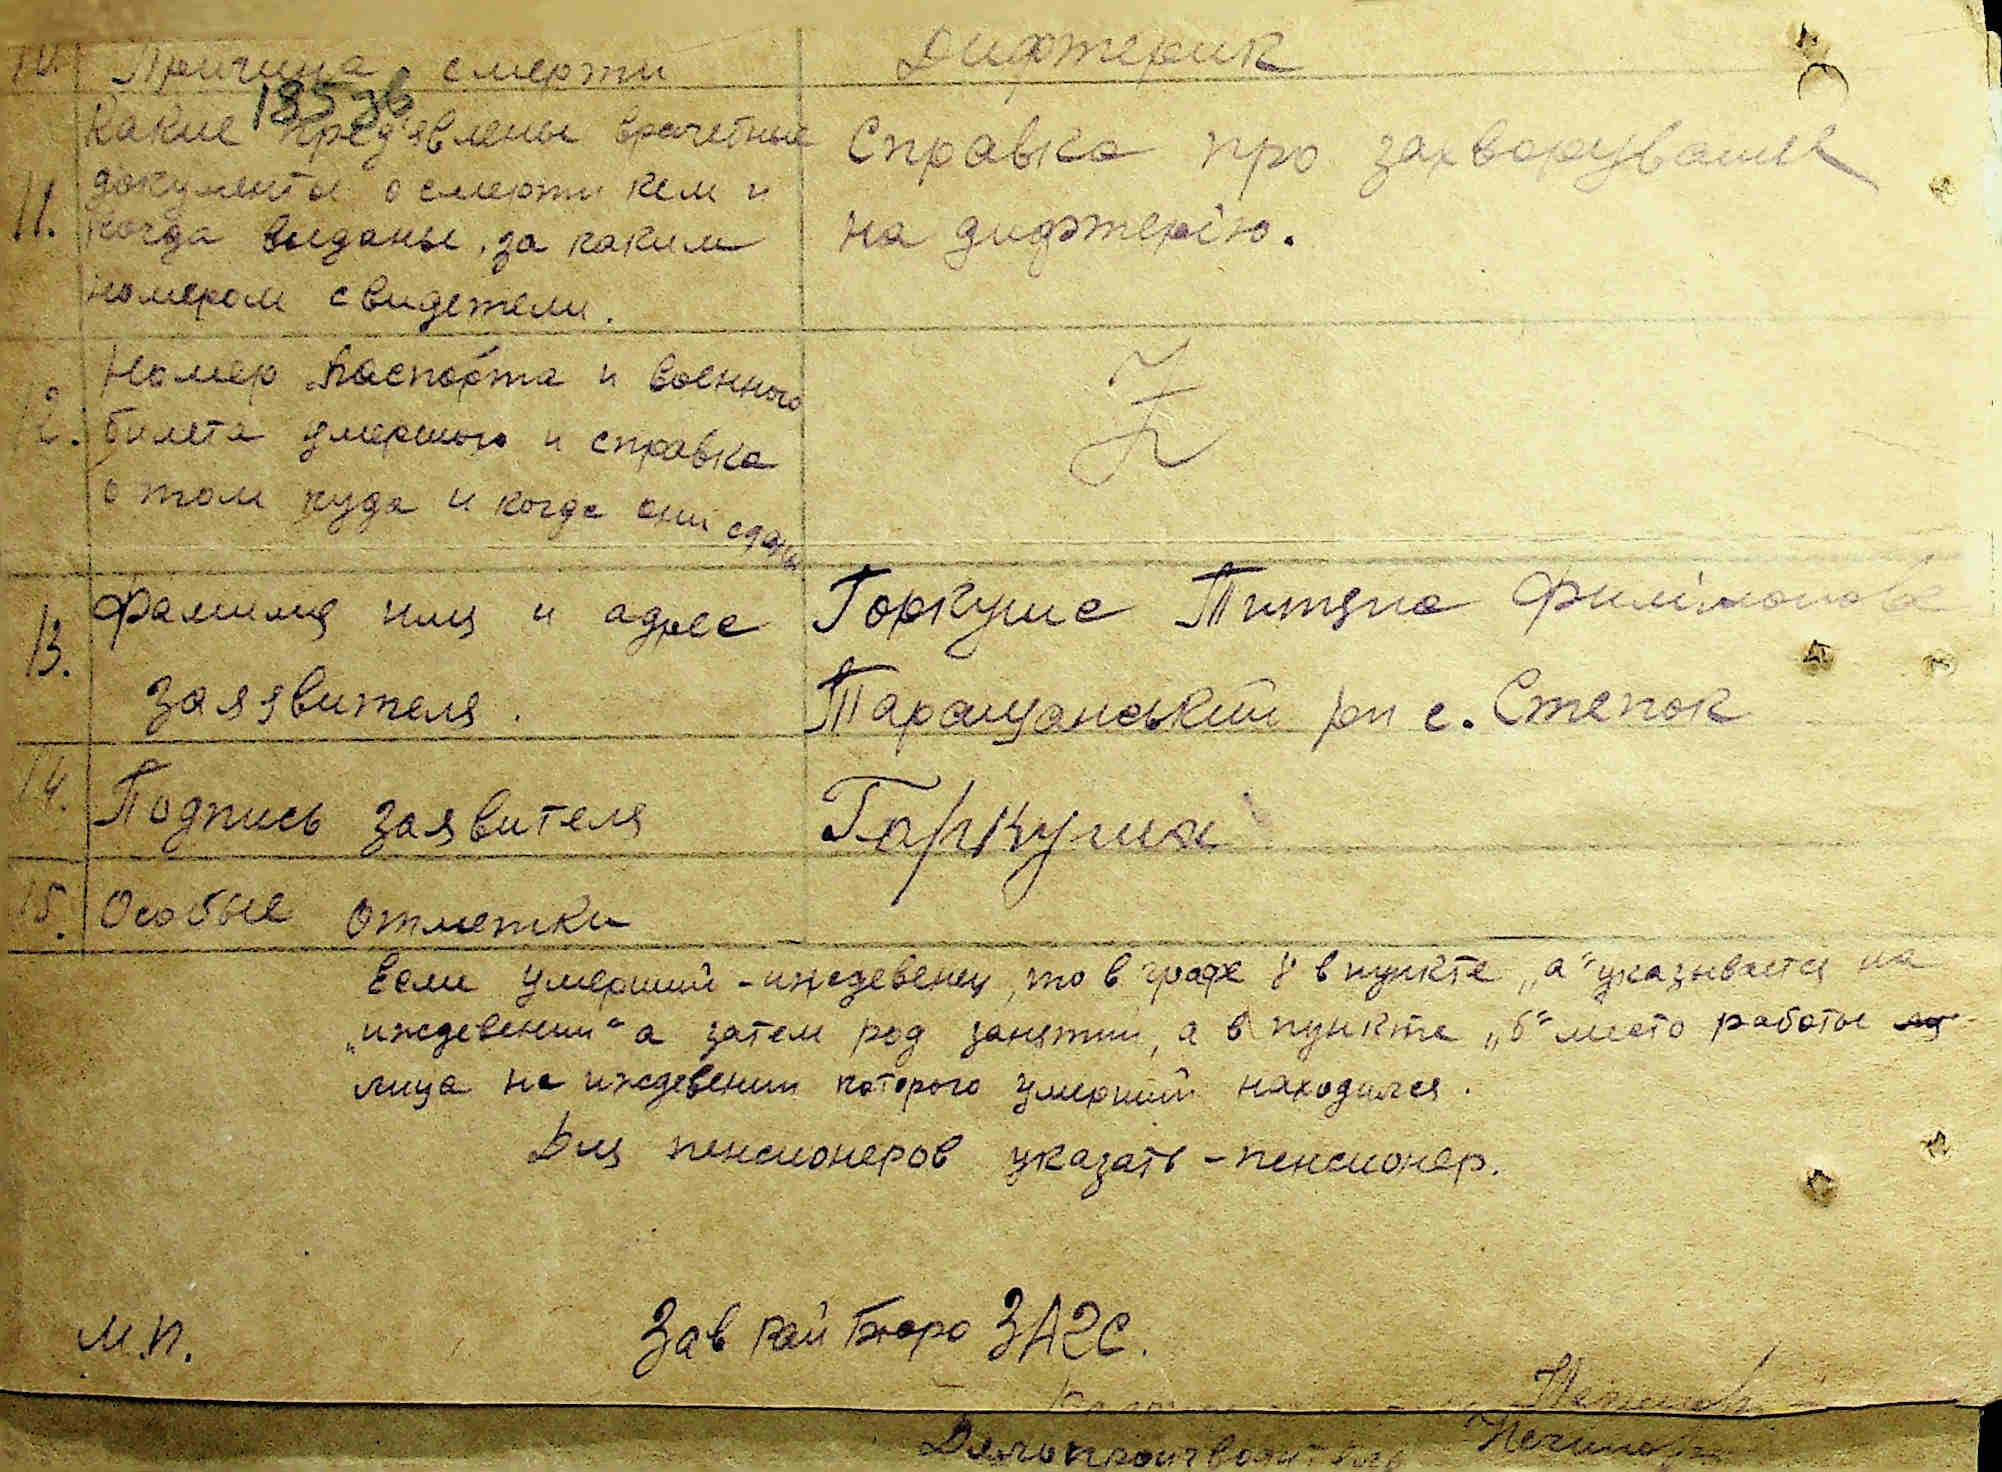 10. Причина смерти Дифтерик
185 зв
Какие пред'явлены врачебные Справка про захворування
11. документы о смерти кем и
когда выданы, за каким на дифтерію.
номером свидетели.
Номер паспорта и военного
12. билета умершого и справка
о том куда и когда они сданы
13. Фамилия имя и адрес Горкуше Титяна Филімонова
заявителя. Таращанський рн с. Степок
14. Подпись заявителя Гаркуша
15. Особые отметки
Если умерший - иждевенец, то в графе 8 в пункте „а" указывается на
„иждевении" а затем род занятий, а в пункте „б" место работы
лица на иждевении которого умерший находился.
Для пенсионеров указать - пенсионер.
М.П. Зав рай Бюро ЗАГС.
Делопроизводитель